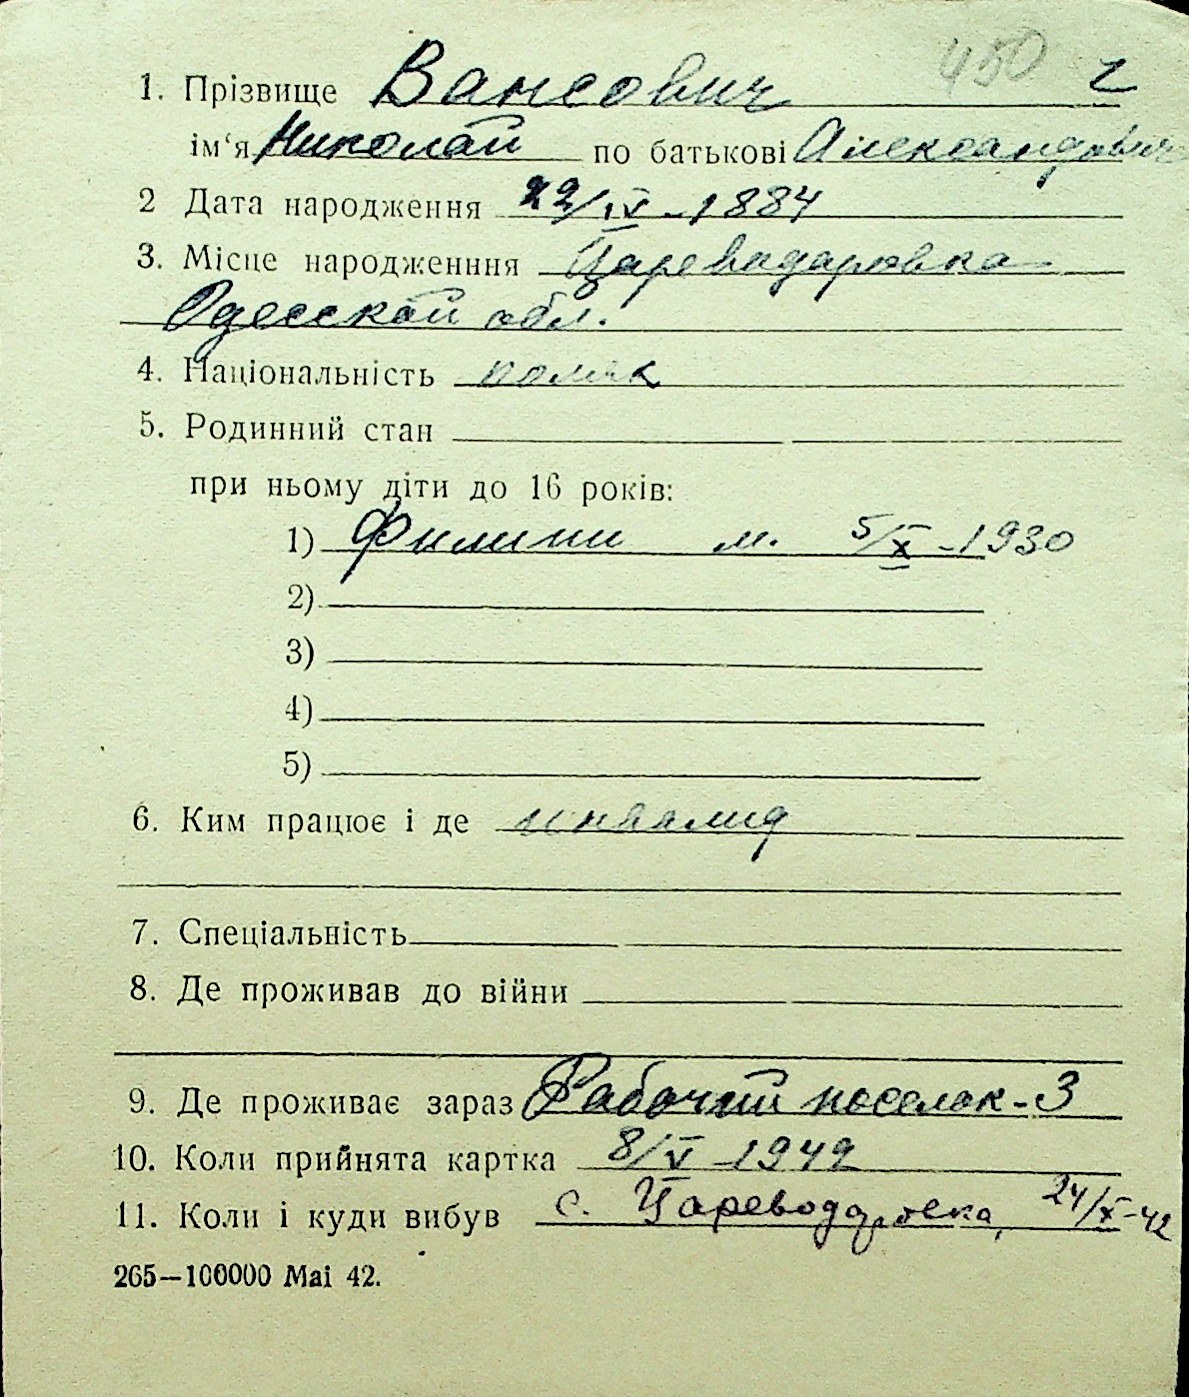 450 г
1. Прізвище Вансович
ім‘я Николай по батькові Александрович
2 Дата народження 22/IV-1884
3. Місце народженння Цареводаровка
Одесской обл.
4. Національність поляк
5. Родинний стан
при ньому діти до 16 років:
1) Филипп м. 5/X-1930
2)
3)
4)
5)
6. Ким працює і де инвалид
7. Спеціальність
8. Де проживав до війни
9. Де проживає зараз Рабочий поселок-3
10. Коли прийнята картка 8/V-1942
11. Коли і куди вибув с. Цареводаровка, 24/X-42
265—100000 Mai 42.